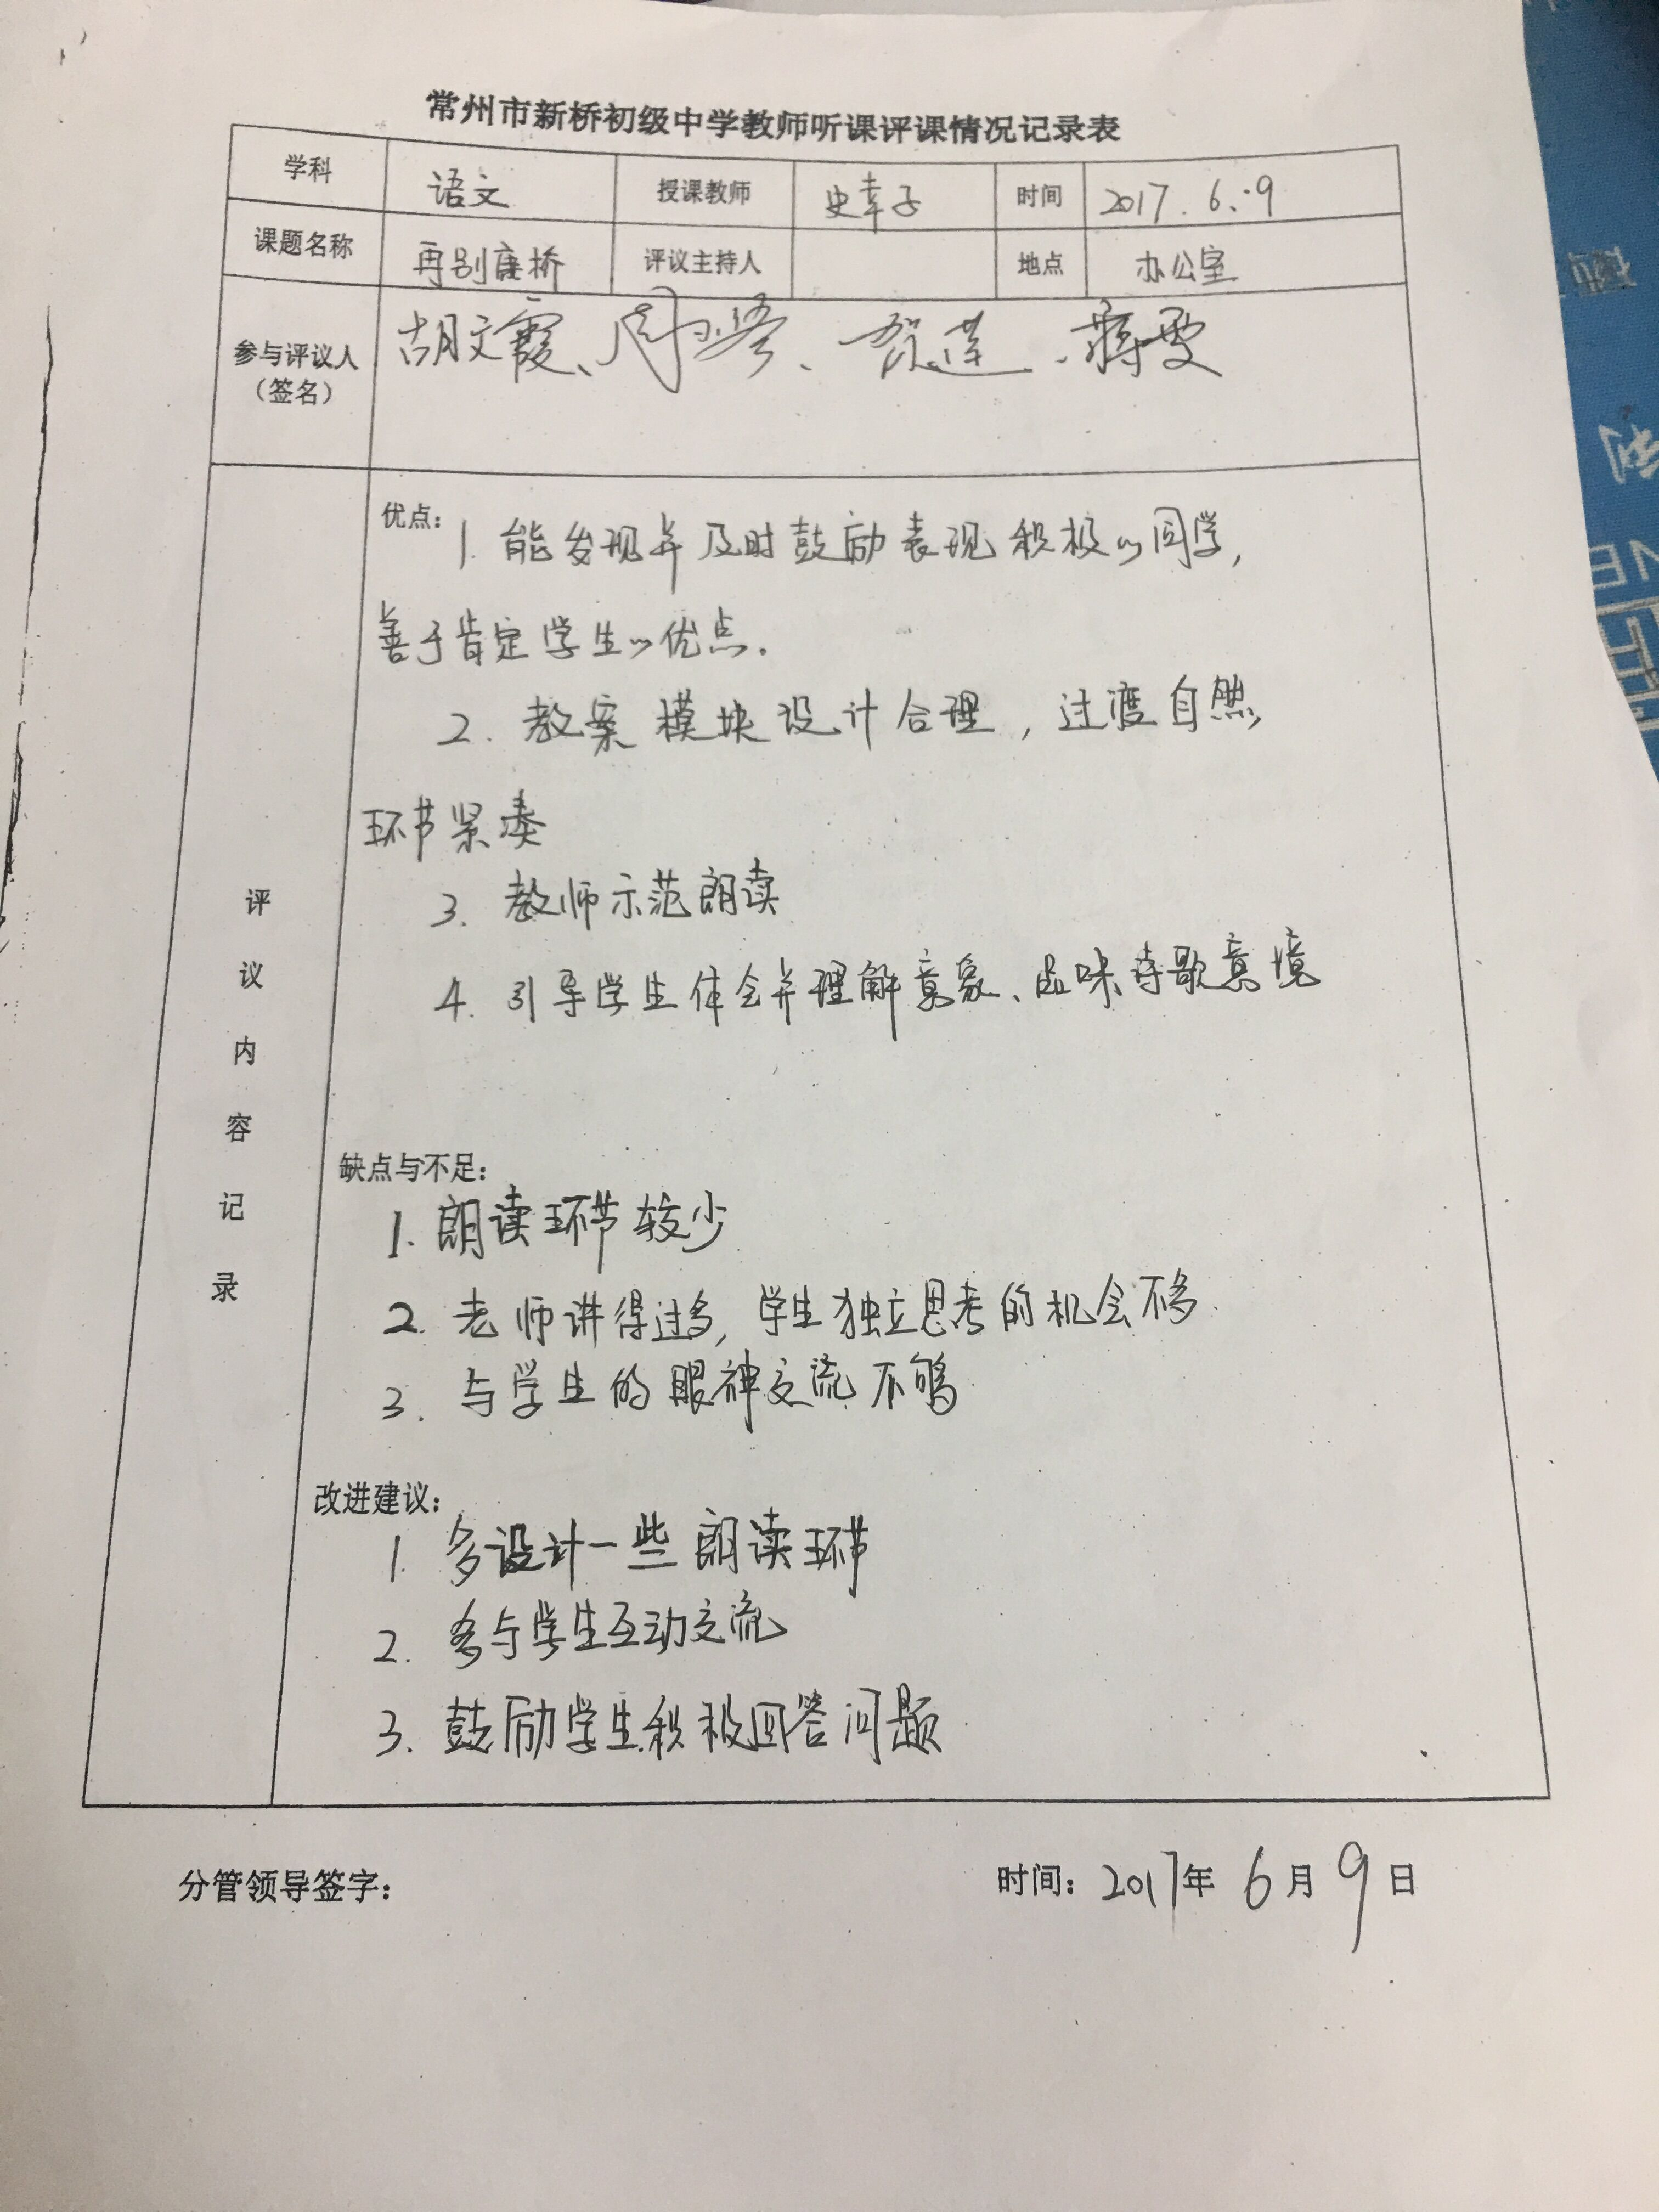 常州市新桥初级中学教师听课评课情况记录表
学科 语文 授课教师 史幸子 时间 2017.6.9
课题名称 再别康桥 评议主持人 地点 办公室
参与评议人
(签名)
胡文霞、周、贺莲、蒋雯
优点:
1. 能发现并及时鼓励表现积极的同学,
善于肯定学生的优点.
2. 教案模块设计合理,过渡自然,
环节紧凑
3. 教师示范朗读
4. 引导学生体会并理解意象、品味诗歌意境
评
议
内
容
记
录
缺点与不足:
1. 朗读环节较少
2. 老师讲得过多,学生独立思考的机会不多
3. 与学生的眼神交流不够
改进建议:
1. 多设计一些朗读环节
2. 多与学生互动交流
3. 鼓励学生积极回答问题
分管领导签字: 时间: 2017年 6月 9日